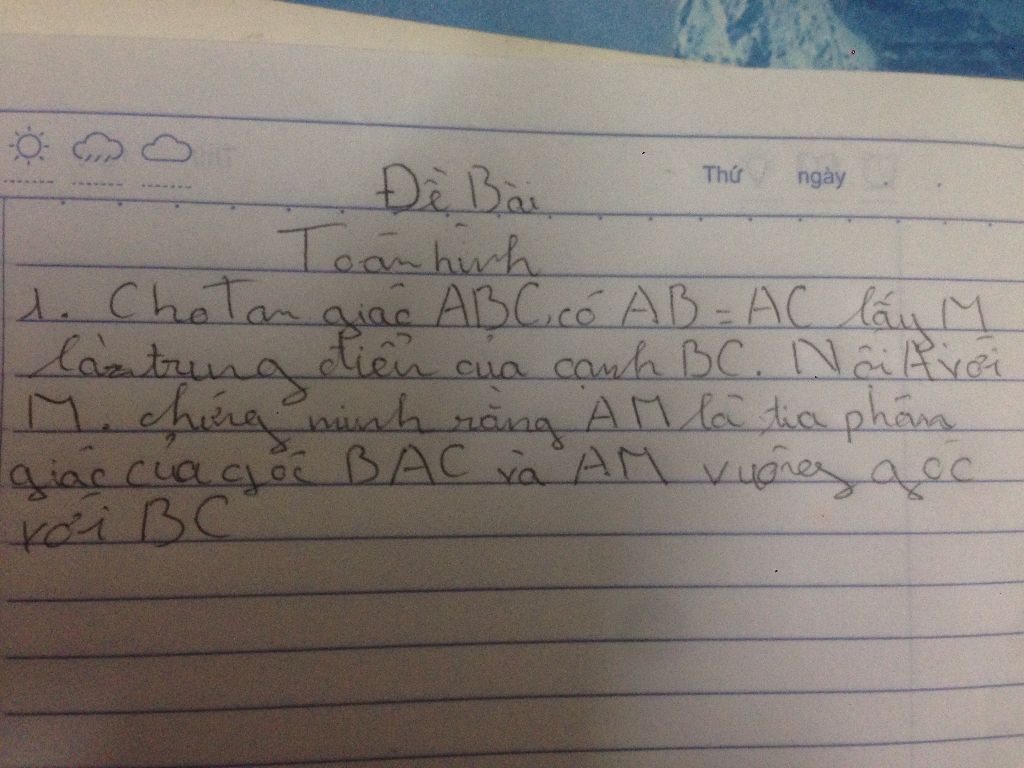 Thứ ngày
Đề Bài
Toán hình
1. Cho Tam giác ABC, có AB = AC lấy M
là trung điểm của cạnh BC. Nối A với
M. chứng minh rằng AM là tia phân
giác của góc BAC và AM vuông góc
với BC